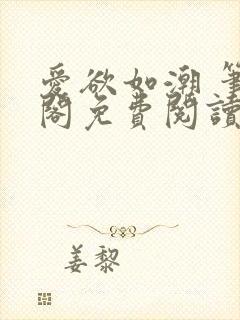 愛欲如潮 筆
閣免費閱讀
姜黎